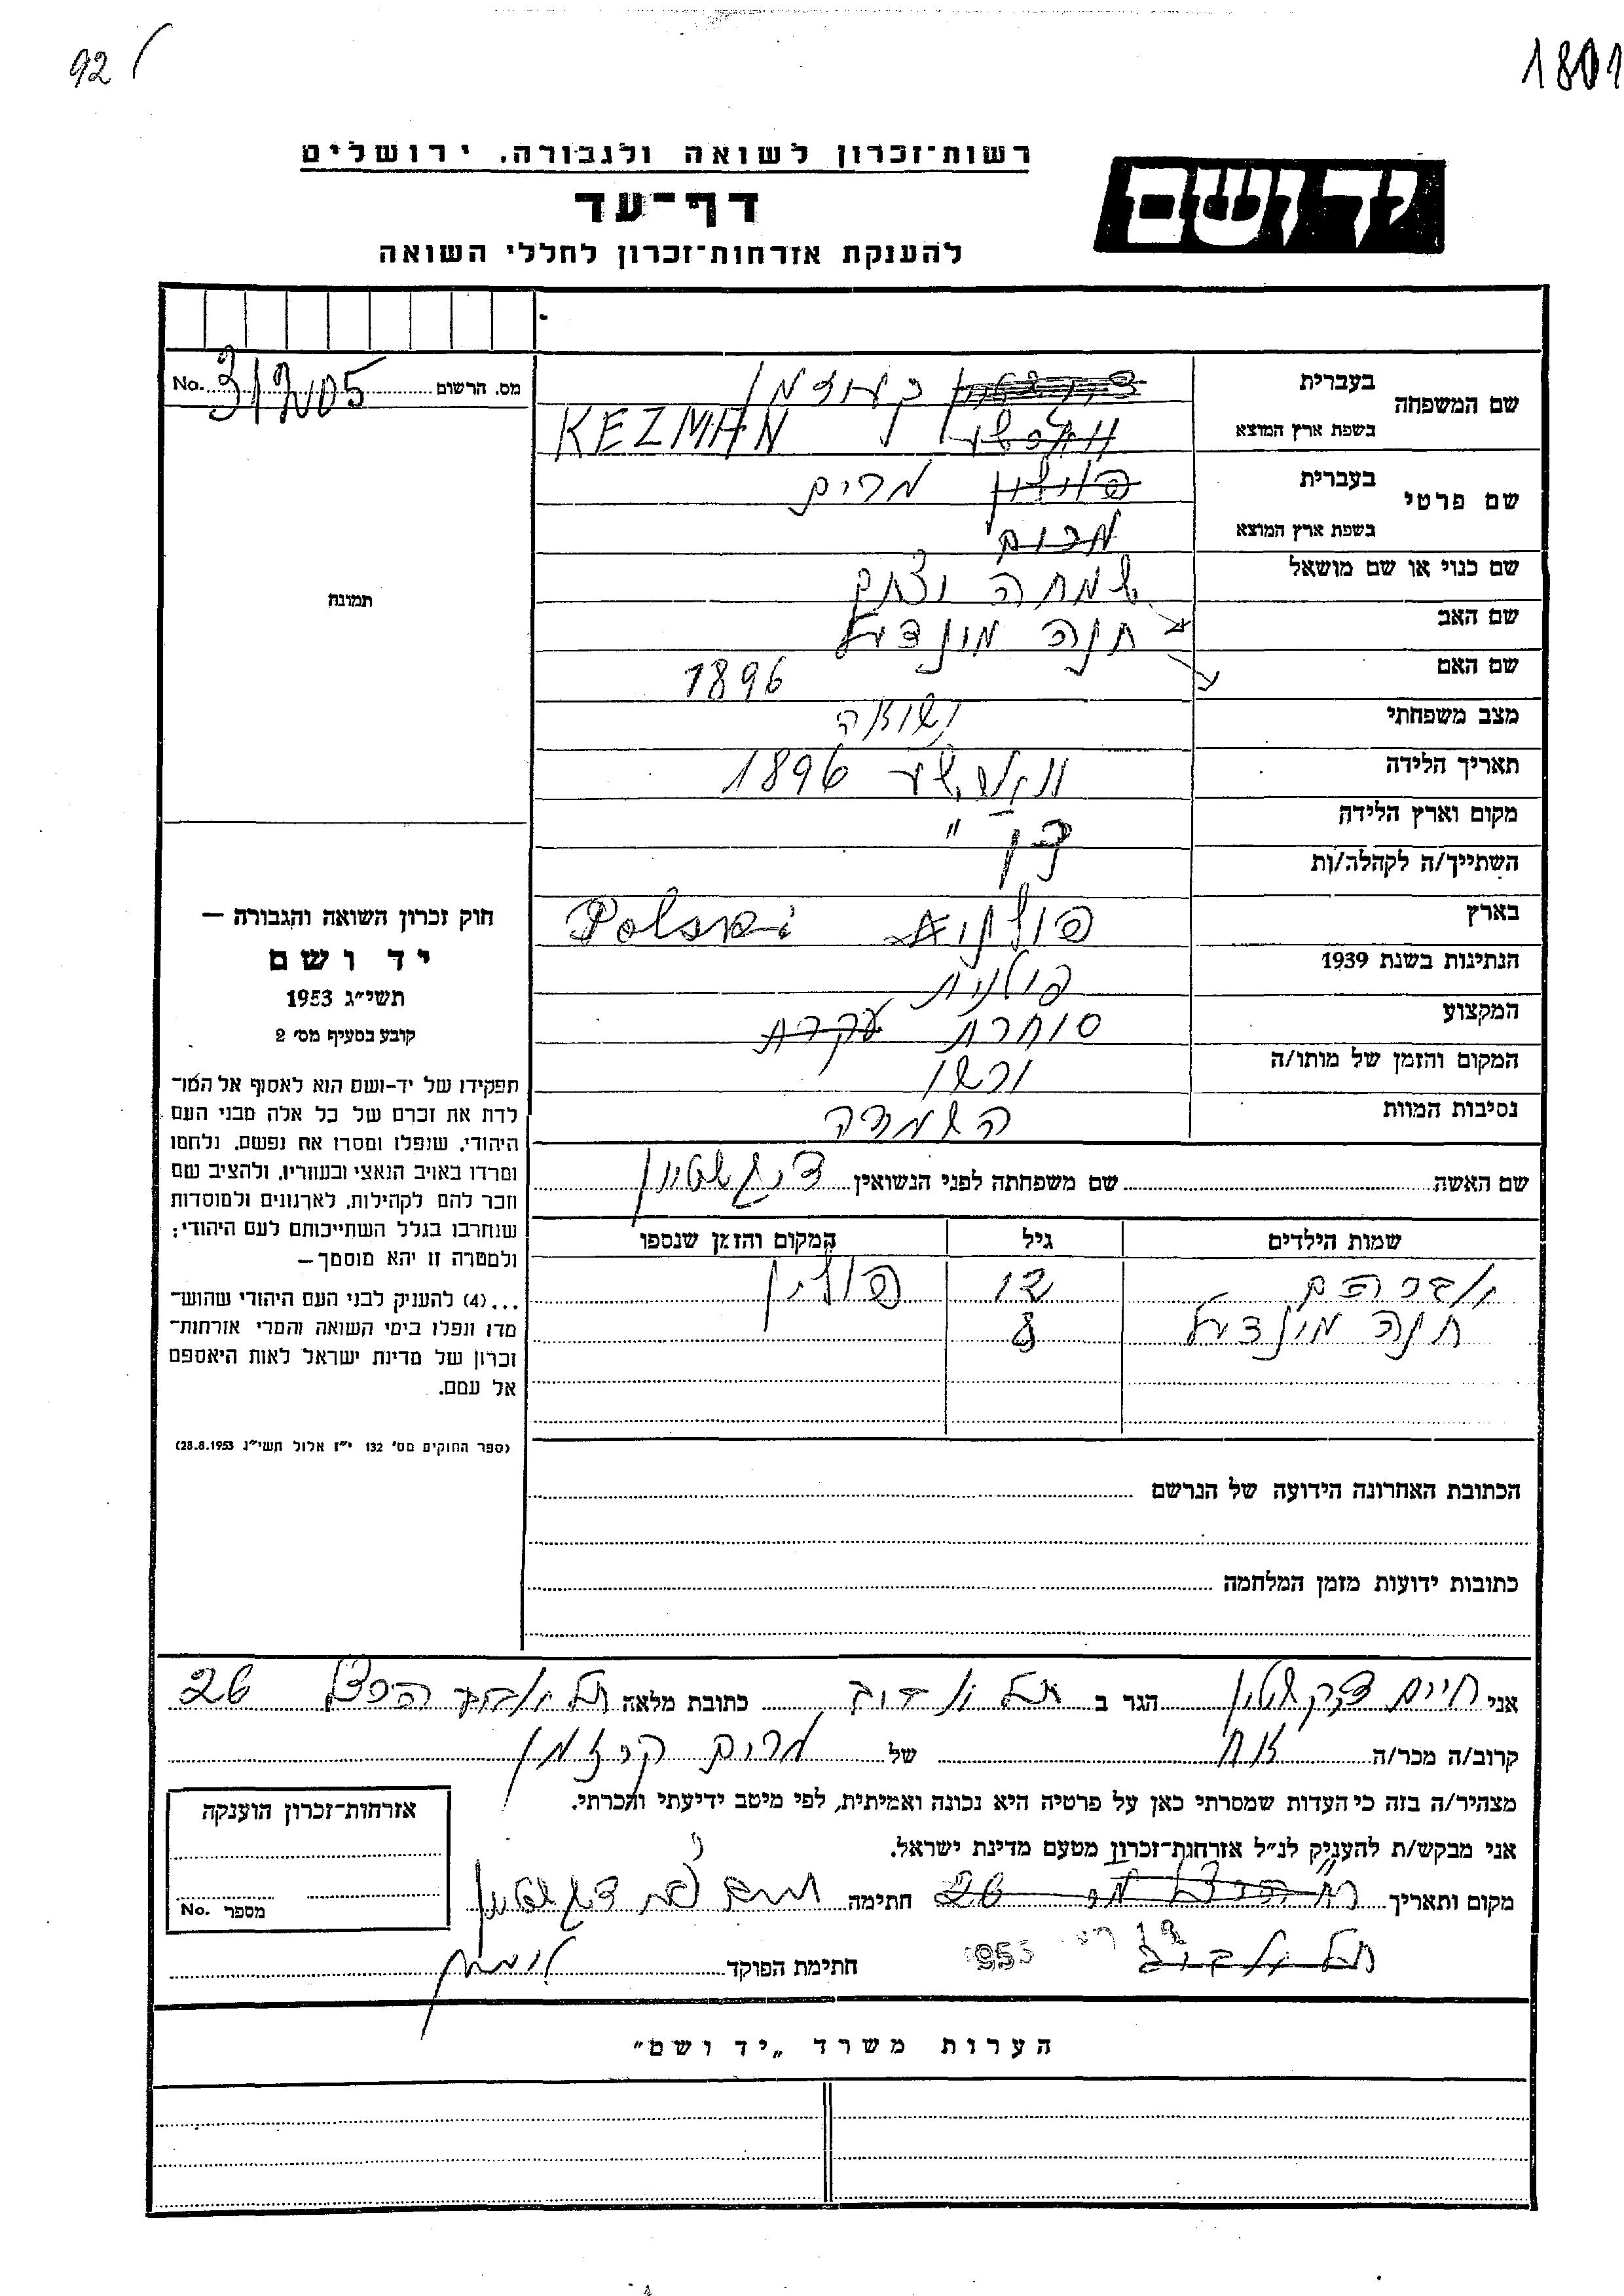 92
1801
רשות־זכרון לשואה ולגבורה, ירושלים
יד ושם
דף־עד
להענקת אזרחות־זכרון לחללי השואה
מס. הרשום No.
שם המשפחה
בעברית
בשפת ארץ המוצא KEZMAN
שם פרטי
בעברית מרים
בשפת ארץ המוצא
שם כנוי או שם מושאל שמחה יצחק
שם האב חנה מינדעל
שם האם 1896
מצב משפחתי נשואה
תאריך הלידה 1896
מקום וארץ הלידה
השתייך/ה לקהלה/ות
בארץ פולניא Polski
הנתינות בשנת 1939 פולנית
המקצוע סוחרת עקרת
המקום והזמן של מותו/ה ורשו
נסיבות המוות השמדה
שם האשה שם משפחתה לפני הנשואין
שמות הילדים גיל המקום והזמן שנספו
אברהם 12 פולין
חנה מינדעל 8
הכתובת האחרונה הידועה של הנרשם
כתובות ידועות מזמן המלחמה
תמונה
חוק זכרון השואה והגבורה —
יד ושם
תשי״ג 1953
קובע בסעיף מס׳ 2
תפקידו של יד־ושם הוא לאסוף אל המו־
לדת את זכרם של כל אלה מבני העם
היהודי, שנפלו ומסרו את נפשם, נלחמו
ומרדו באויב הנאצי ובעוזריו, ולהציב שם
וזכר להם לקהילות, לארגונים ולמוסדות
שנחרבו בגלל השתייכותם לעם היהודי;
ולמטרה זו יהא מוסמך—
...(4) להעניק לבני העם היהודי שהוש־
מדו ונפלו בימי השואה והמרי אזרחות־
זכרון של מדינת ישראל לאות היאספם
אל עמם.
(ספר החוקים מס׳ 132 י״ז אלול תשי״ג 28.8.1953)
אני חיים הגר ב תל אביב כתובת מלאה תל אביב 26
קרוב/ה מכר/ה אח של מרים קיזמן
מצהיר/ה בזה כי העדות שמסרתי כאן על פרטיה היא נכונה ואמיתית, לפי מיטב ידיעתי והכרתי.
אני מבקש/ת להעניק לנ״ל אזרחות־זכרון מטעם מדינת ישראל.
מקום ותאריך 26 חתימה
תל אביב
חתימת הפוקד
אזרחות־זכרון הוענקה
מספר No.
הערות משרד „יד ושם״